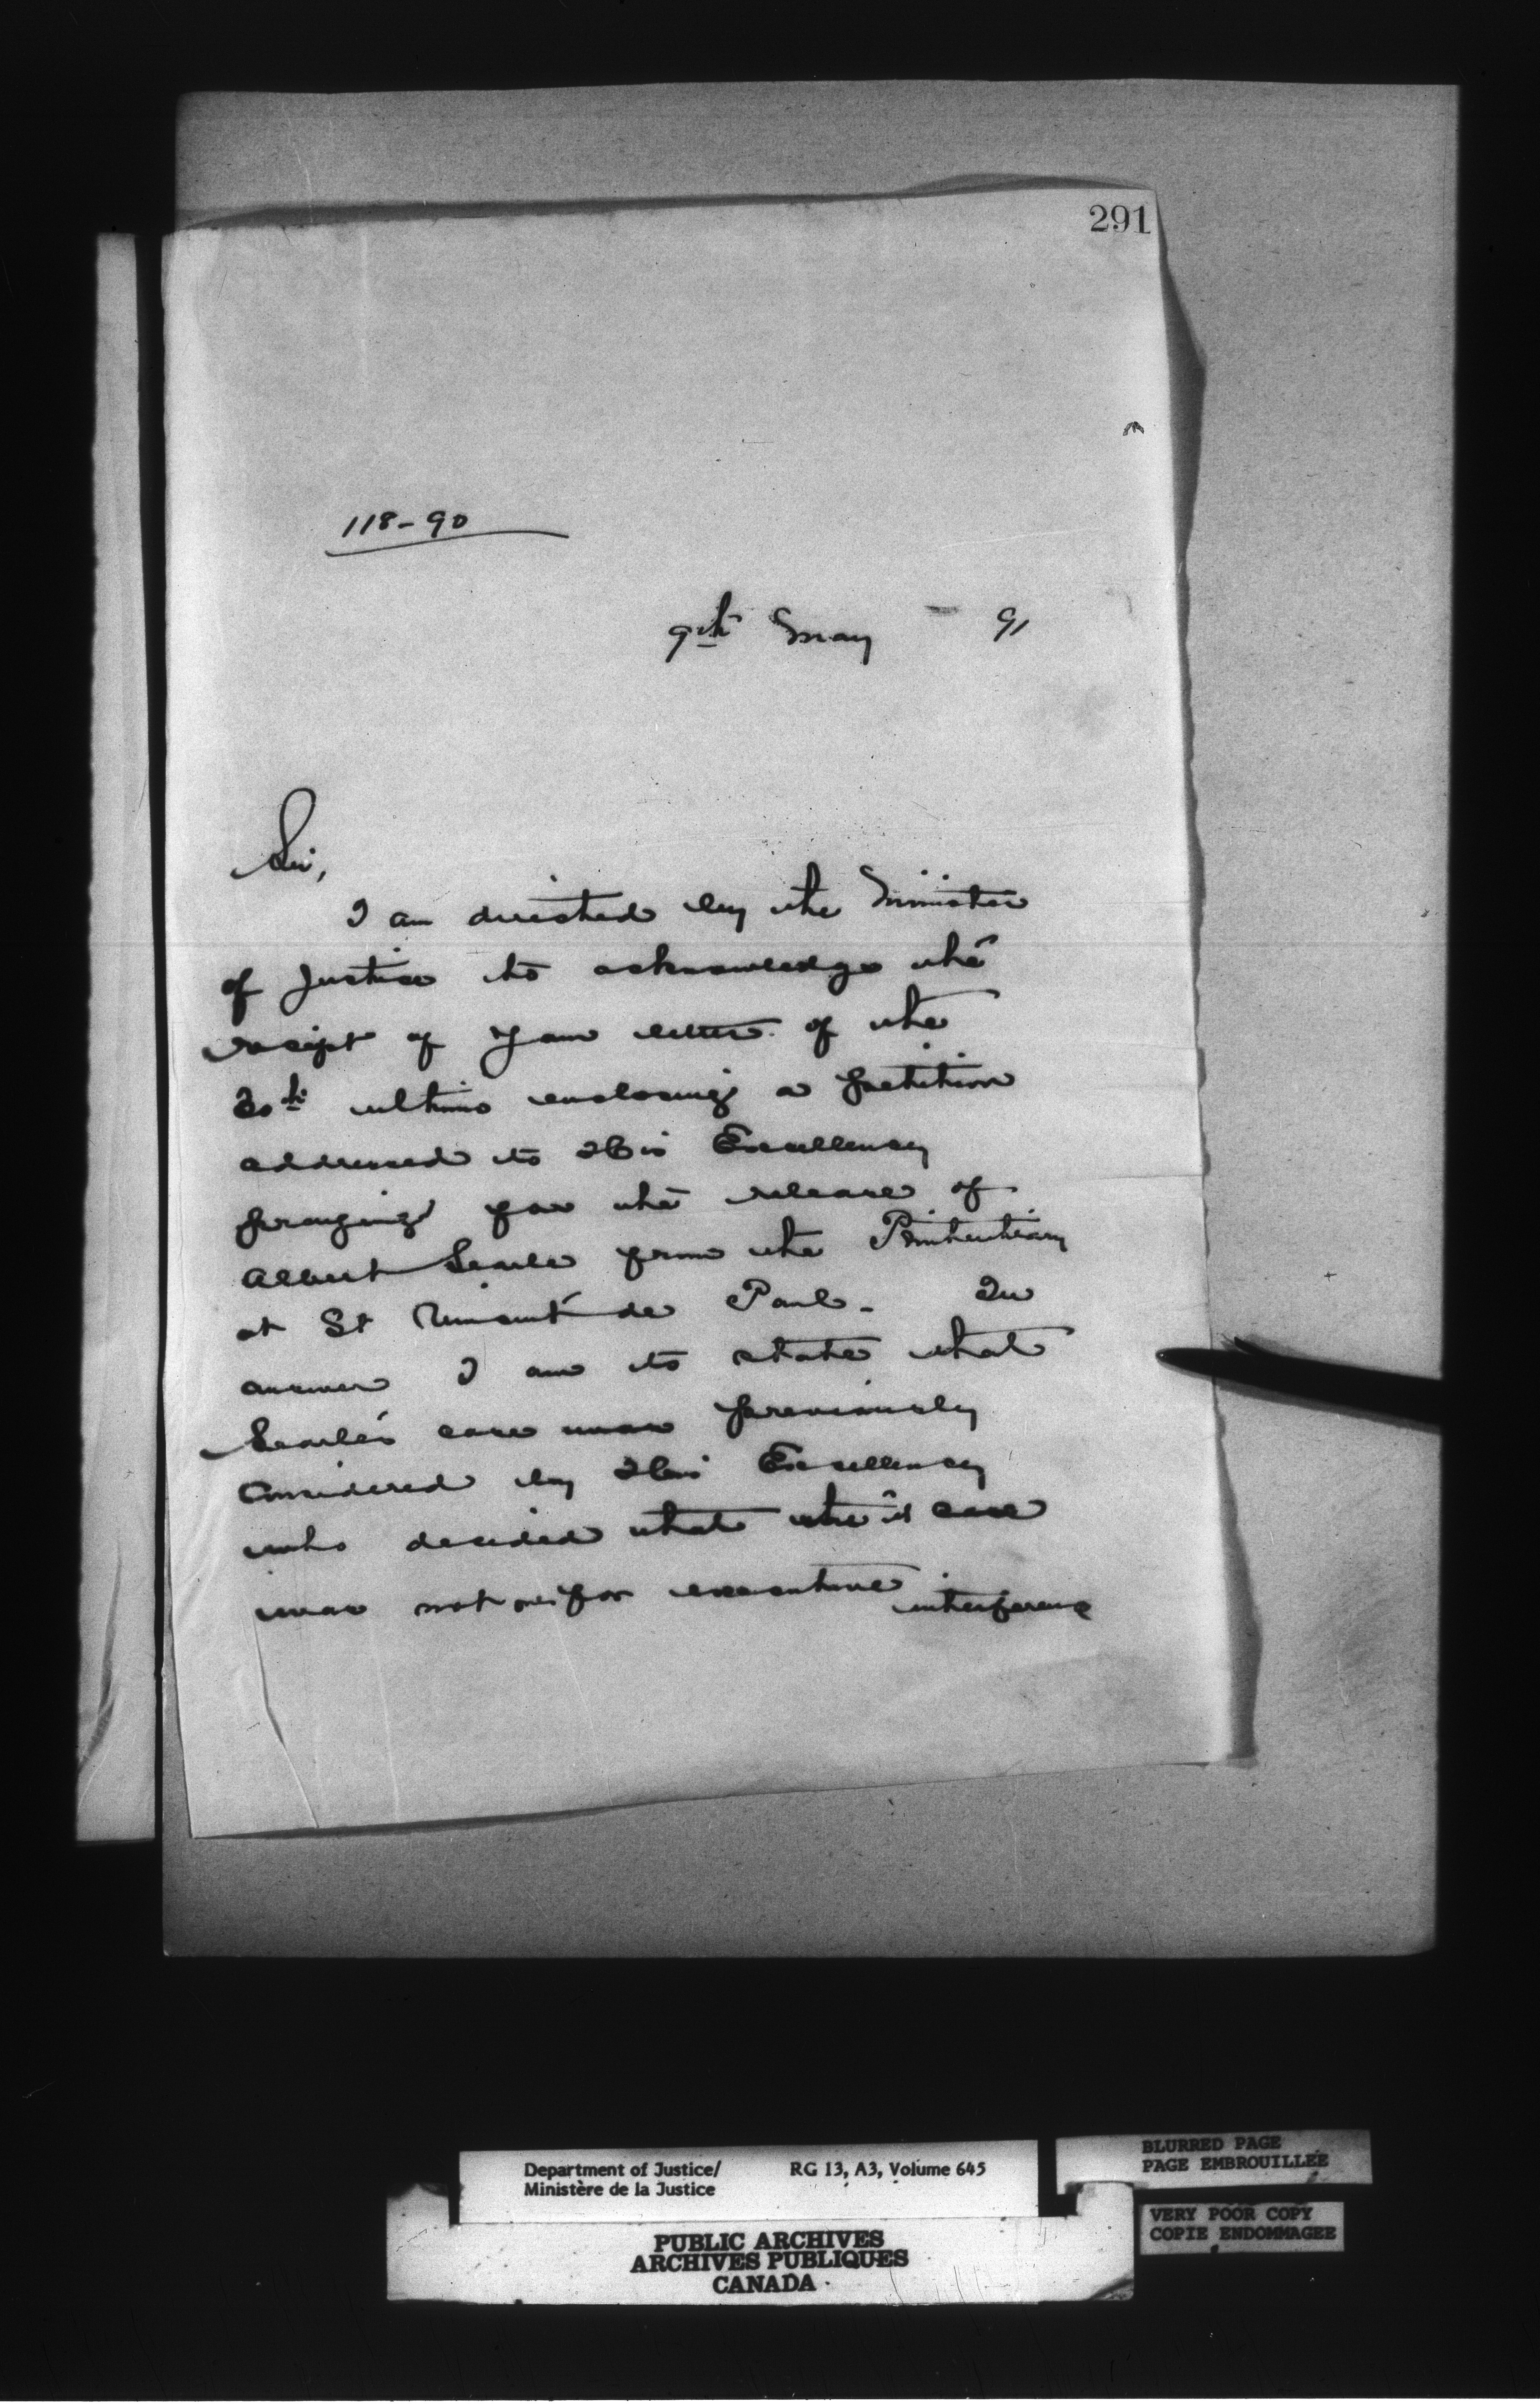 291
118-90
9th May 91
Sir,
I am directed by the Minister
of Justice to acknowledge the
receipt of your letter of the
30th ultimo enclosing a petition
addressed to His Excellency
praying for the release of
Albert Searle from the Penitentiary
at St Vincent de Paul. In
answer I am to state that
Searle's case was previously
considered by His Excellency
who decided that the case
was not one for executive interference
Department of Justice/ RG 13, A3, Volume 645
Ministère de la Justice
PUBLIC ARCHIVES
ARCHIVES PUBLIQUES
CANADA
BLURRED PAGE
PAGE EMBROUILLÉE
VERY POOR COPY
COPIE ENDOMMAGEE